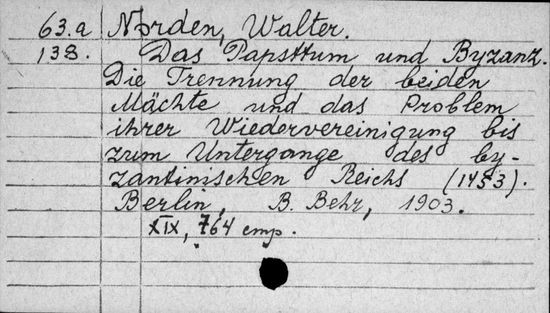 63.a Norden, Walter.
138. Das Papsttum und Byzanz.
Die Trennung der beiden
Mächte und das Problem
ihrer Wiedervereinigung bis
zum Untergange des by-
zantinischen Reichs (1453).
Berlin, B. Behr, 1903.
XIX, 764 стр.